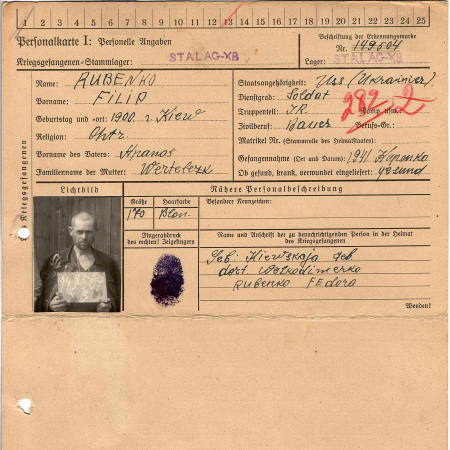 1 2 3 4 5 6 7 8 9 10 11 12 13 14 15 16 17 18 19 20 21 22 23 24 25
Personalkarte I: Personelle Angaben
Beschriftung der Erkennungsmarke
Nr. 149504
Kriegsgefangenen-Stammlager: STALAG-XB
Lager: STALAG-XB
Des Kriegsgefangenen
Name: RUBENKO
Vorname: FILIP
Geburtstag und -ort: 1900. r. Kiew
Religion: Ohtr.
Vorname des Vaters: Apanos
Familienname der Mutter:
Staatsangehörigkeit: Uss (Ukrainier)
Dienstgrad: Soldat
Truppenteil: I.R. Komp. usw.:
Zivilberuf: Bauer Berufs-Gr.:
282 2
Matrikel Nr. (Stammrolle des Heimatstaates):
Gefangennahme (Ort und Datum): 1941
Ob gesund, krank, verwundet eingeliefert: gesund
Lichtbild
Nähere Personalbeschreibung
Größe
Haarfarbe
170
Blon.
Besondere Kennzeichen:
Fingerabdruck
des rechten! Zeigefingers
Name und Anschrift der zu benachrichtigenden Person in der Heimat
des Kriegsgefangenen
Geb. Kiewskaja Geb
dort
RUBENKO FEdora
Wenden!